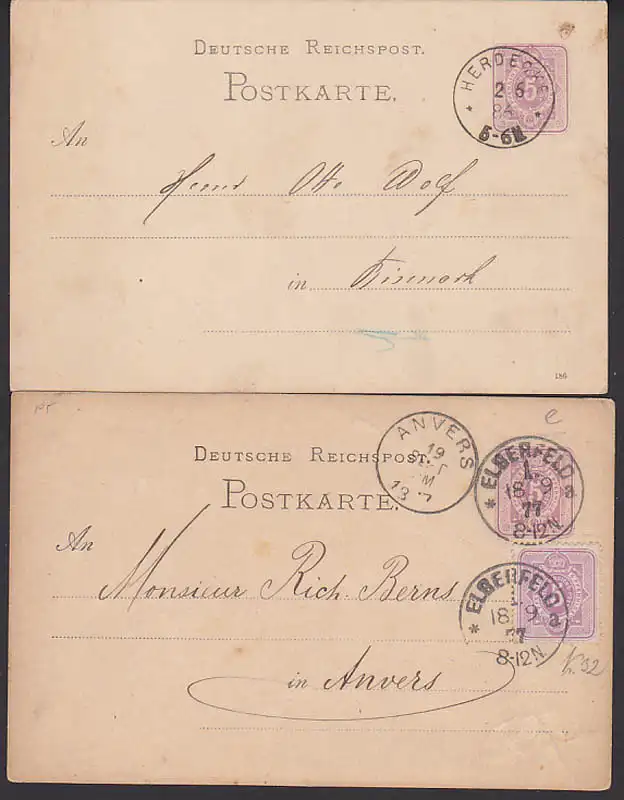 DEUTSCHE REICHSPOST.
POSTKARTE.
HERDECKE
2 6
86
5-6N
An
Herrn Otto Wolf
in Bismark
186
ANVERS
19
SEPT
13
DEUTSCHE REICHSPOST.
POSTKARTE.
* ELBERFELD a
1.
18 9
77
8-12N.
An
Monsieur Rich. Berns
* ELBERFELD a
1.
18 9
77
8-12N.
in Anvers